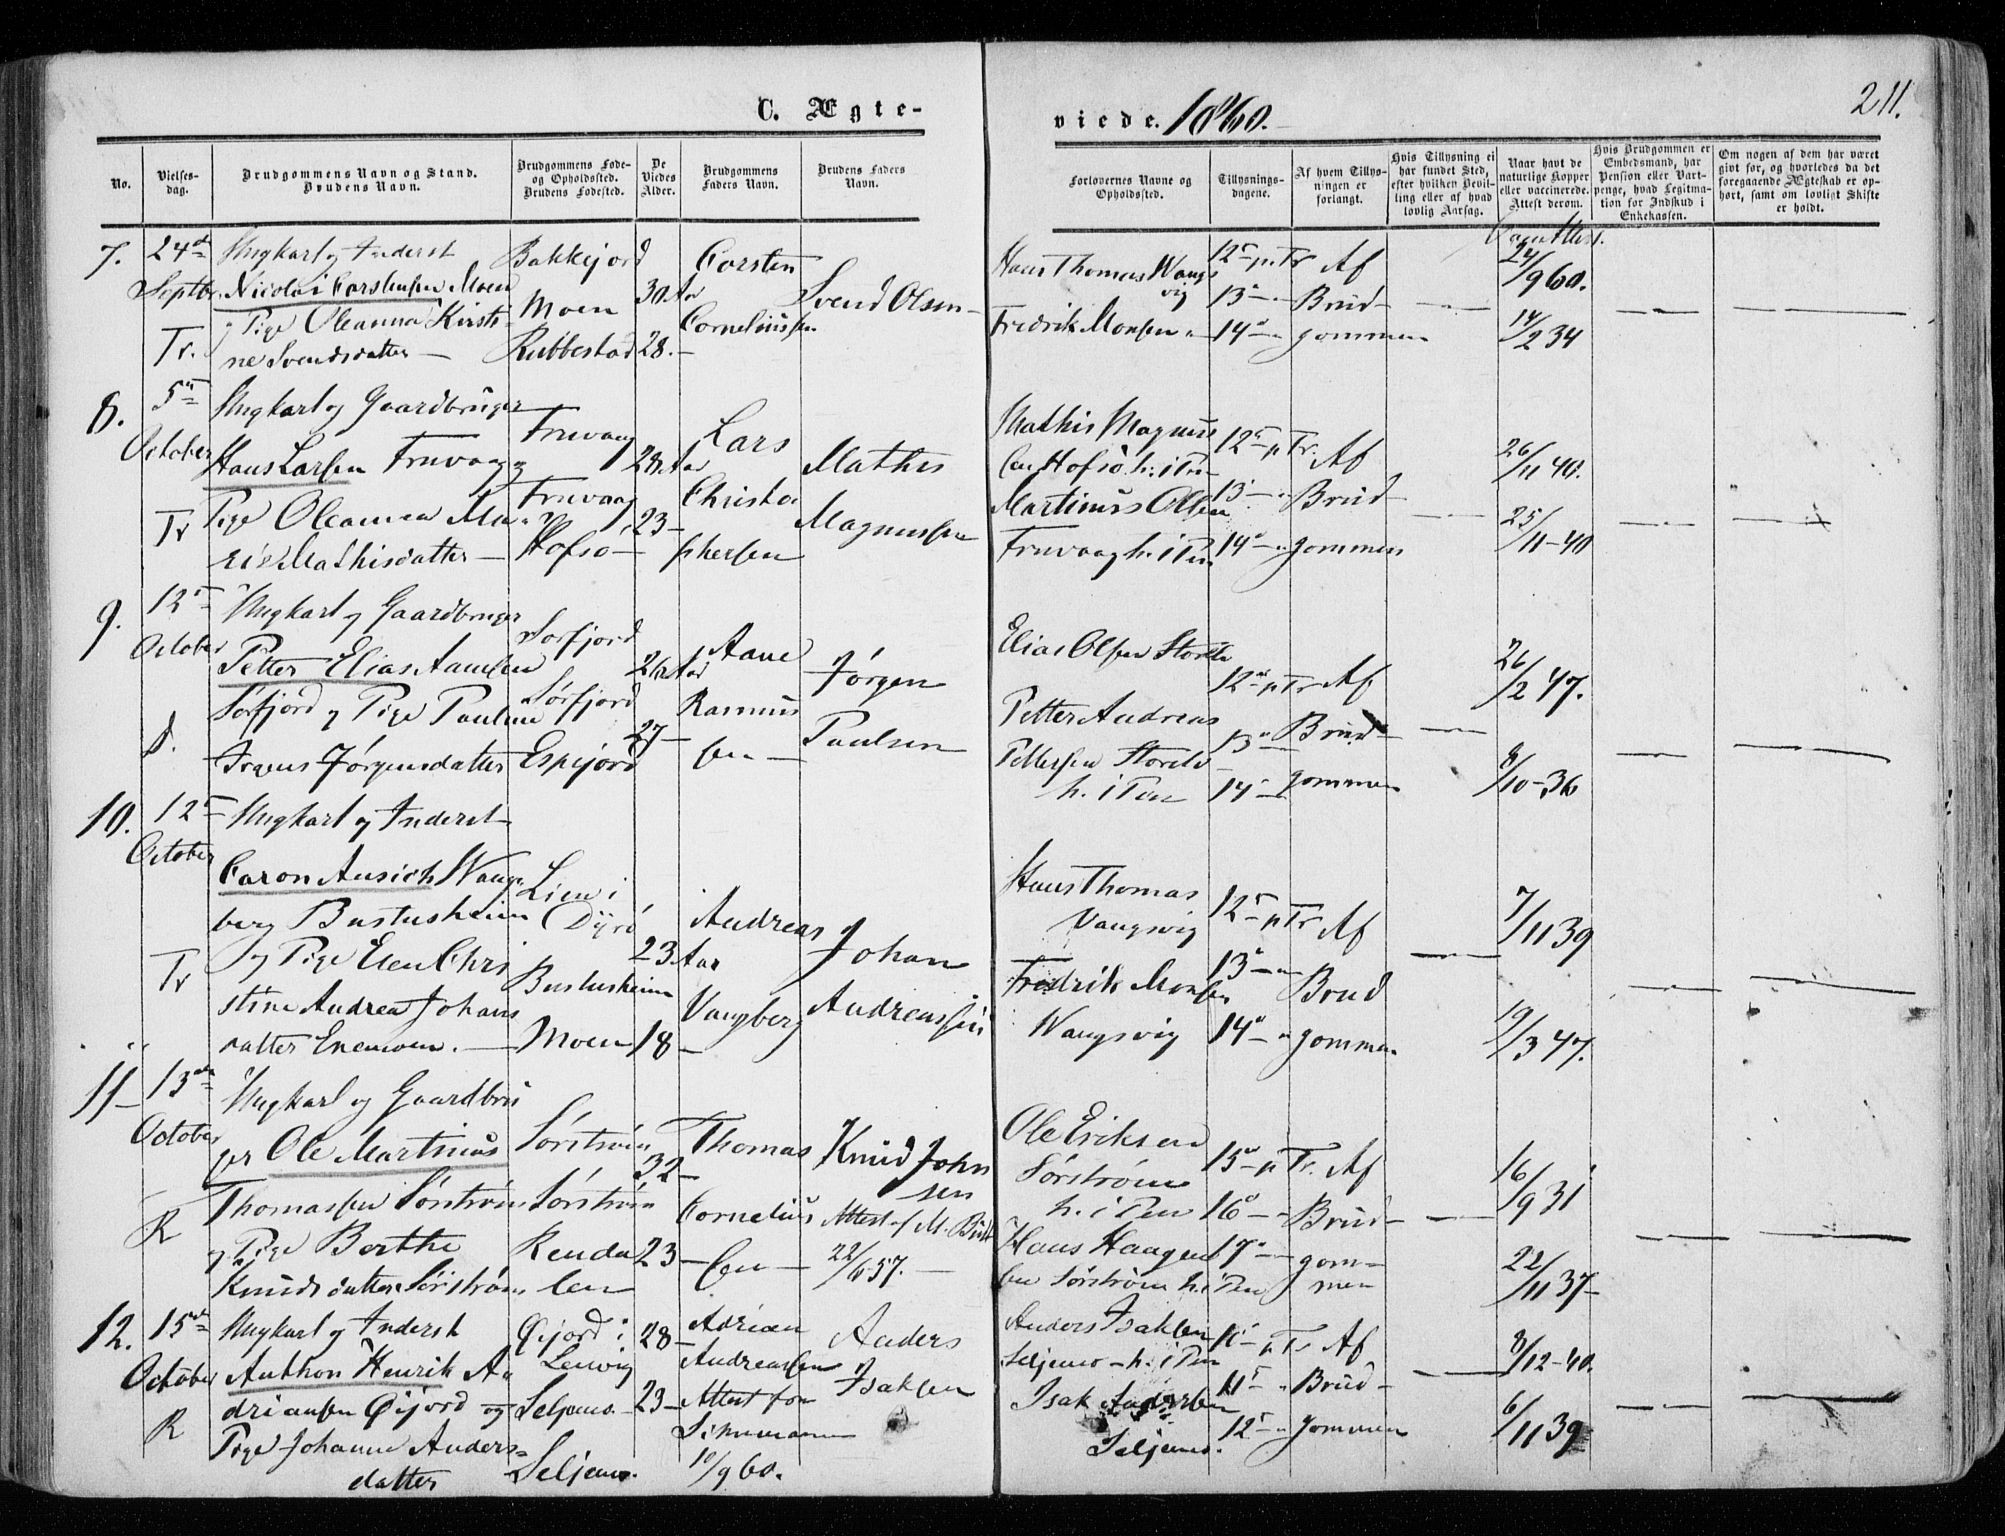 C. Ægte-
viede. 1860.
211.
No.
Vielses-
dag.
Brudgommens Navn og Stand.
Brudens Navn.
Brudgommens Føde-
og Opholdssted.
Brudens Fødested.
De
Viedes
Alder.
Brudgommens
Faders Navn.
Brudens Faders
Navn.
Forlovernes Navne og
Opholdssted.
Tillysnings-
dagene.
Af hvem Tillys-
ningen er
forlangt.
Hvis Tillysning ei
har fundet Sted,
efter hvilken Bevil-
ling eller af hvad
lovlig Aarsag.
Naar havt de
naturlige Kopper
eller vaccinerede.
Attest derom.
Hvis Brudgommen er
Embedsmand, har
Pension eller Vart-
penge, hvad Legitima-
tion for Indskud i
Enkekassen.
Om nogen af dem har været
givt før, og hvorledes da det
foregaaende Ægteskab er op-
hørt, samt om lovligt Skifte
er holdt.
7.
24de
Septbr
Tr.
Ungkarl og Inderst
Nicolai Carstensen Moen
og Pige Oleanna Kirsti-
ne Svendsdatter —
Bakkejord
Moen
Rubbestad
30 Aar
28. –
Carsten
Corneliussen
Svend Olsen –
Hans Thomas Wangs
vig
Fredrik Monsen "
12te p. Tr
13 – "
14 – "
Af
Brud-
gommen
24/9 60.
14/2 34
8.
5te
October
Tr
Ungkarl og Gaardbruger
Hans Larsen Truvaag og
Pige Oleanna Ma-
rie Mathisdatter –
Truvaag
Truvaag
Hofsø –
28 Aar
23 –
Lars
Christo
phersen
Mathis
Magnussen
Mathis Magnus
sen Hofsø h. i Pen
Martinus Olsen
Truvaag h. i Pen
12te p. Tr.
13 – "
14 – "
Af
Brud-
gommen
26/11 40.
25/11 – 40
9.
12te
October
S.
Ungkarl og Gaardbruger
Petter Elias Aanesen
Sørfjord og Pige Pauline
Jørgensdatter
Sørfjord
Sørfjord
Espejord
26 Aar
27 –
Aane
Rasmus
sen –
Jørgen
Paulsen
Elias Olsen
Petter Andreas
Pettersen
h. i Pen
12te p. Tr
13 –
14 –
Af
Brud-
gommen
26/2 47.
8/10 – 36
10.
12te
October
Tr
Ungkarl og Inderst
Wang-
berg
og Pige Elen Chri
stine Andrea Johans
datter Enemoen. –
Lien i
Dyrø
Moen
23 Aar
18 –
Andreas
Vangberg
Johan
Andreassen
Hans Thomas
Vangsvig
Fredrik Monsen
Wangsvig
12te p. Tr
13 – "
14 – "
Af
Brud
gommen
7/11 39
19/3 47.
11 –
13de
October
R
Ungkarl og Gaardbru
ger Ole Martinus
Thomassen Sørstrøm
og Pige Berthe
Knudsdatter Sørstrøm
Sørstrøm
Sørstrøm
Renda
len
32 –
23 –
Thomas
Cornelius
sen –
Knud John
sen
Attest af M.
22/6 57. –
Ole Eriksen
Sørstrøm
h. i Pen
Hans Haagen
sen Sørstrøm h. i Pen
15 p. Tr.
16 – "
17 –
Af
Brud-
gom-
men
16/9 31
22/11 37 –
12.
15de
October
R
Ungkarl og Inderst
Anthon Henrik A-
driansen Øijord og
Pige Johanne Anders-
datter
Øijord i
Lenvig
Seljemo
Seljemo.
28 –
23 –
Adrian
Andreassen
Attest fra
10/9 60.
Anders
Isaksen
Anders Isaksen
Seljemo – h. i Pen
Isak Andersen
Seljemo.
p. Tr
11 – "
12 – "
Af
Brud-
gommen
8/12 – 40.
6/11 39